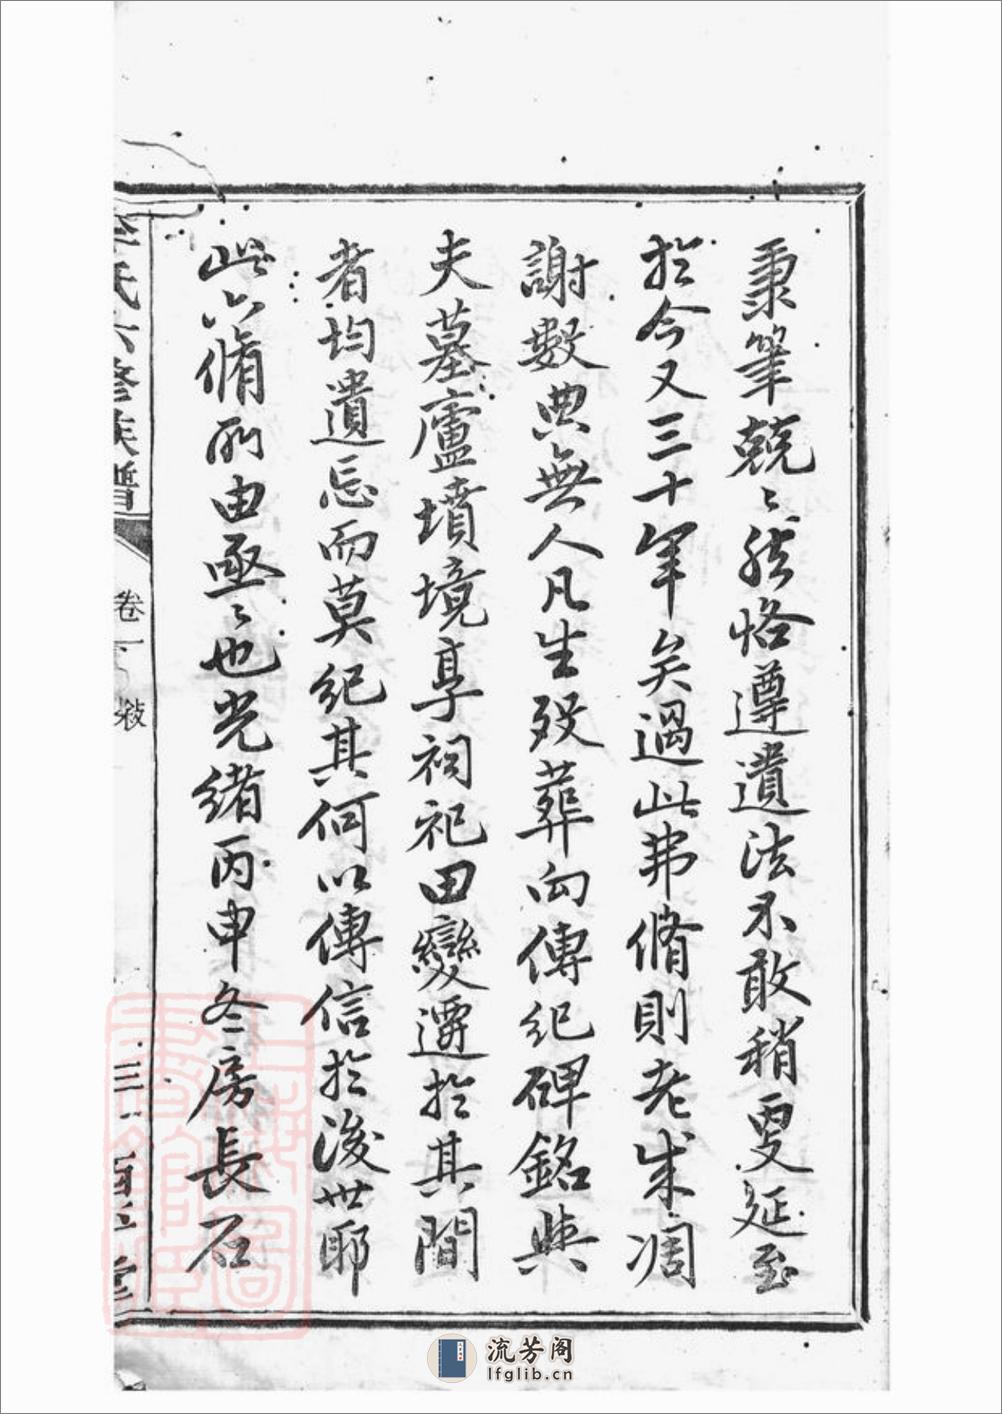 秉筆兢〻然恪遵遺法不敢稍更延至
於今又三十年矣過此弗脩則老成凋
謝數典無人凡生歿葬向傳紀碑銘與
夫墓廬墳境享祠祀田變遷於其間
者均遺忘而莫紀其何以傳信於後世耶
此六脩所由亟〻也光緒丙申冬房長石
李氏六修族譜
卷一
敍
三
流芳阁
lfglib.cn